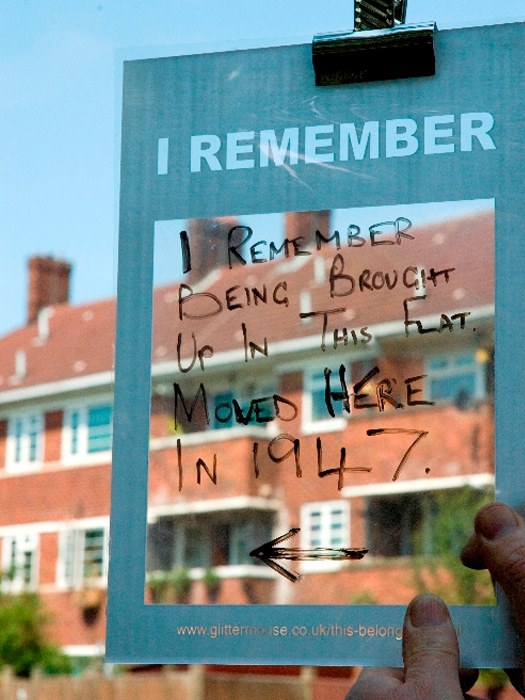 I REMEMBER
I REMEMBER
BEING BROUGHT
UP IN THIS FLAT.
MOVED HERE
IN 1947.
www.glittermouse.co.uk/this-belong